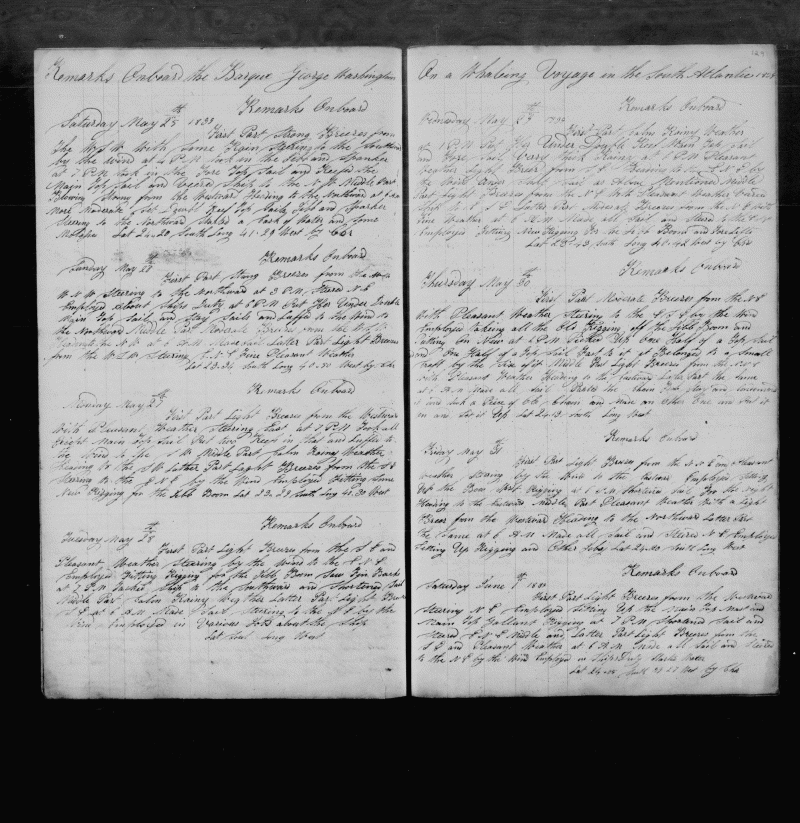 Remarks Onboard the Barque George Washington
Remarks Onboard
Saturday May 25th 1833
First Part Strong Breezes from
the WSW With Some Rigin Stering to the Southward
by the Wind at 4 PM took in the Jibb and Spanker
at 7 PM took in the Fore Top Sail and Reefed the
Main Top Sail and Weard Ship to the N W Middle Part
Blowing Strong from the Westward Heading to the Northward at
more Moderate Set Double Reef Top Sails Jibb and Spanker
Stering to the Northward Steard a Cask of Water and Some
Lat 24-20 South Long 41-29 West by Chr
Remarks Onboard
Sunday May 26
First Part Strong Breezes from the
W N W Stering to the Northward at 3 PM Steerd N E
Employed about Ships Duty at 5 PM Put Her Under Double
Main Top Sail and Stay Sails and Luffed to the Wind to
the Northward Middle Part Moderate Breezes from the W S W
Heading to N W at 6 AM Made Sail Latter Part Light Breezes
from the W S W Steering N E Fine Pleasant Weather
Lat 23-34 South Long 40-50 West by Chr
Remarks Onboard
Monday May 27th
First Part Light Breezes from the Westward
With Pleasant Weather Stering East at 5 PM Took all
Main top Sail Put two Reefs in that and Luffed to
the Wind to the S W Middle Part Calm Rainy Weather
Heading to the S W Latter Part Light Breezes from the S E
Stering to the E N E by the Wind Employed Fitting Some
New Rigging for the Jibb Boom Lat 23-29 South Long 41-30 West
Remarks Onboard
Tuesday May 28th
First Part Light Breezes from the S E and
Pleasant Weather Steering by the Wind to the E N E
Employed Fitting Rigging for the Jibb Boom Saw Fin Backs
at 5 PM Tacked Ship to the Southward and Shortened Sail
Middle Part Calm Rainy Weather Latter Part Light Breezes
S E at 6 AM Made Sail Steering to the S E by the
Wind Employed in Various Jobs about the Ship
Lat Long West
On a Whaleing Voyage in the South Atlantic
Remarks Onboard
Wednesday May 29th
First Part Calm Rainy Weather
at 1 PM Put Her Under Double Reef Main Top Sail
and Fore Sail Very Thick Rainy at
Weather Light Breezes from S E Heading to E N E by
the Wind Under Sail as Above Mentioned Middle
Part Light Breezes from the N E With Pleasant Weather
Ship Latter Part Moderate Breezes from the N E With
Fine Weather at 6 AM Made all Sail and Steard to the
Employed Fitting New Rigging For the Jibb Boom and
Lat 23-43 South Long 41-42 West by Chr
Remarks Onboard
Thursday May 30th
First Part Moderate Breezes from the N E
With Pleasant Weather Stering to the by the Wind
Employed taking all the Old Rigging off the Jibb Boom and
Putting on New at 2 PM Picked Up One Half of a Top Sail
and One Half of a Jib Sail Part to it it Belonged to a Small
Craft by the Size of it Middle Part Light Breezes from the
With Pleasant Weather Heading to the Eastward Latter Part the Same
at 6 AM Made all Sail
and took a Piece of Old Chain and Made an Other One and Put it
in and Set it up Lat 24-13 South Long West
Remarks Onboard
Friday May 31
First Part Light Breezes from the N N E and Pleasant
Weather Stering by the Wind to the Eastward Employed Setting
Up the Boom West Rigging at 5 PM Shortend Sail For the Night
Heading to the Eastward Middle Part Pleasant Weather With a Light
Breeze from the Westward Heading to the Northward Latter Part
the Same at 6 AM Made all Sail and Steerd N E Employed
Setting Up Rigging and Other Jobs Lat 24-20 South Long West
Remarks Onboard
Saturday June 1st 1833
First Part Light Breezes from the Westward
Steering N E Employed Setting Up the Main Top Mast and
Main Top Gallant Rigging at 5 PM Shortend Sail and
Steerd E N E Middle and Latter Part Light Breezes from the
S E and Pleasant Weather at 6 AM Made all Sail and Steerd
to the N E by the Wind Employed in Ships Duty Steard Water
Lat 24-08 South 39-28 West by Chr